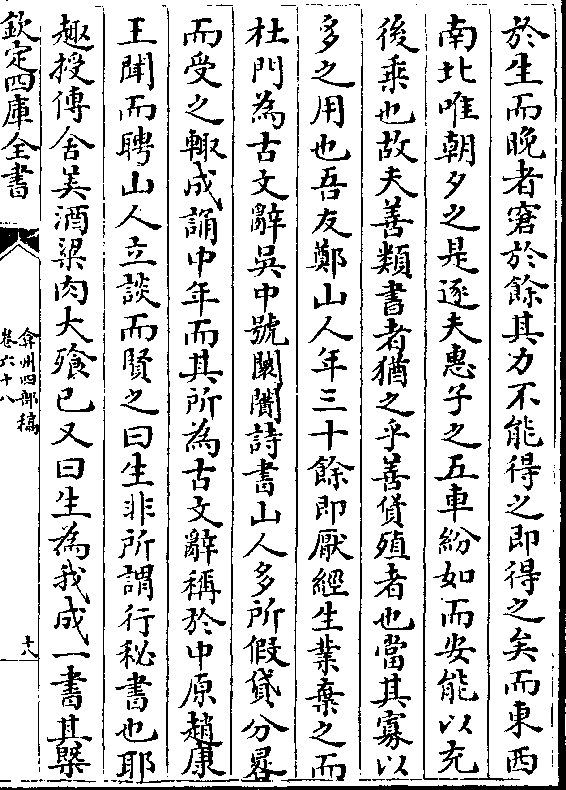 於生而晚者窘於餘其力不能得之即得之矣而東西
南北唯朝夕之是逐夫惠子之五車紛如而安能以充
後乘也故夫善類書者猶之乎善貨殖者也當其寡以
多之用也吾友鄭山人年三十餘即厭經生業棄之而
杜門為古文辭吳中號闤闠詩書山人多所假貸分晷
而受之輙成誦中年而其所為古文辭稱於中原趙康
王聞而聘山人立談而賢之曰生非所謂行秘書也耶
趣授傳舍美酒粱肉大飱已又曰生為我成一書其槩
欽定四庫全書
弇州四部稿
卷六十八
十八